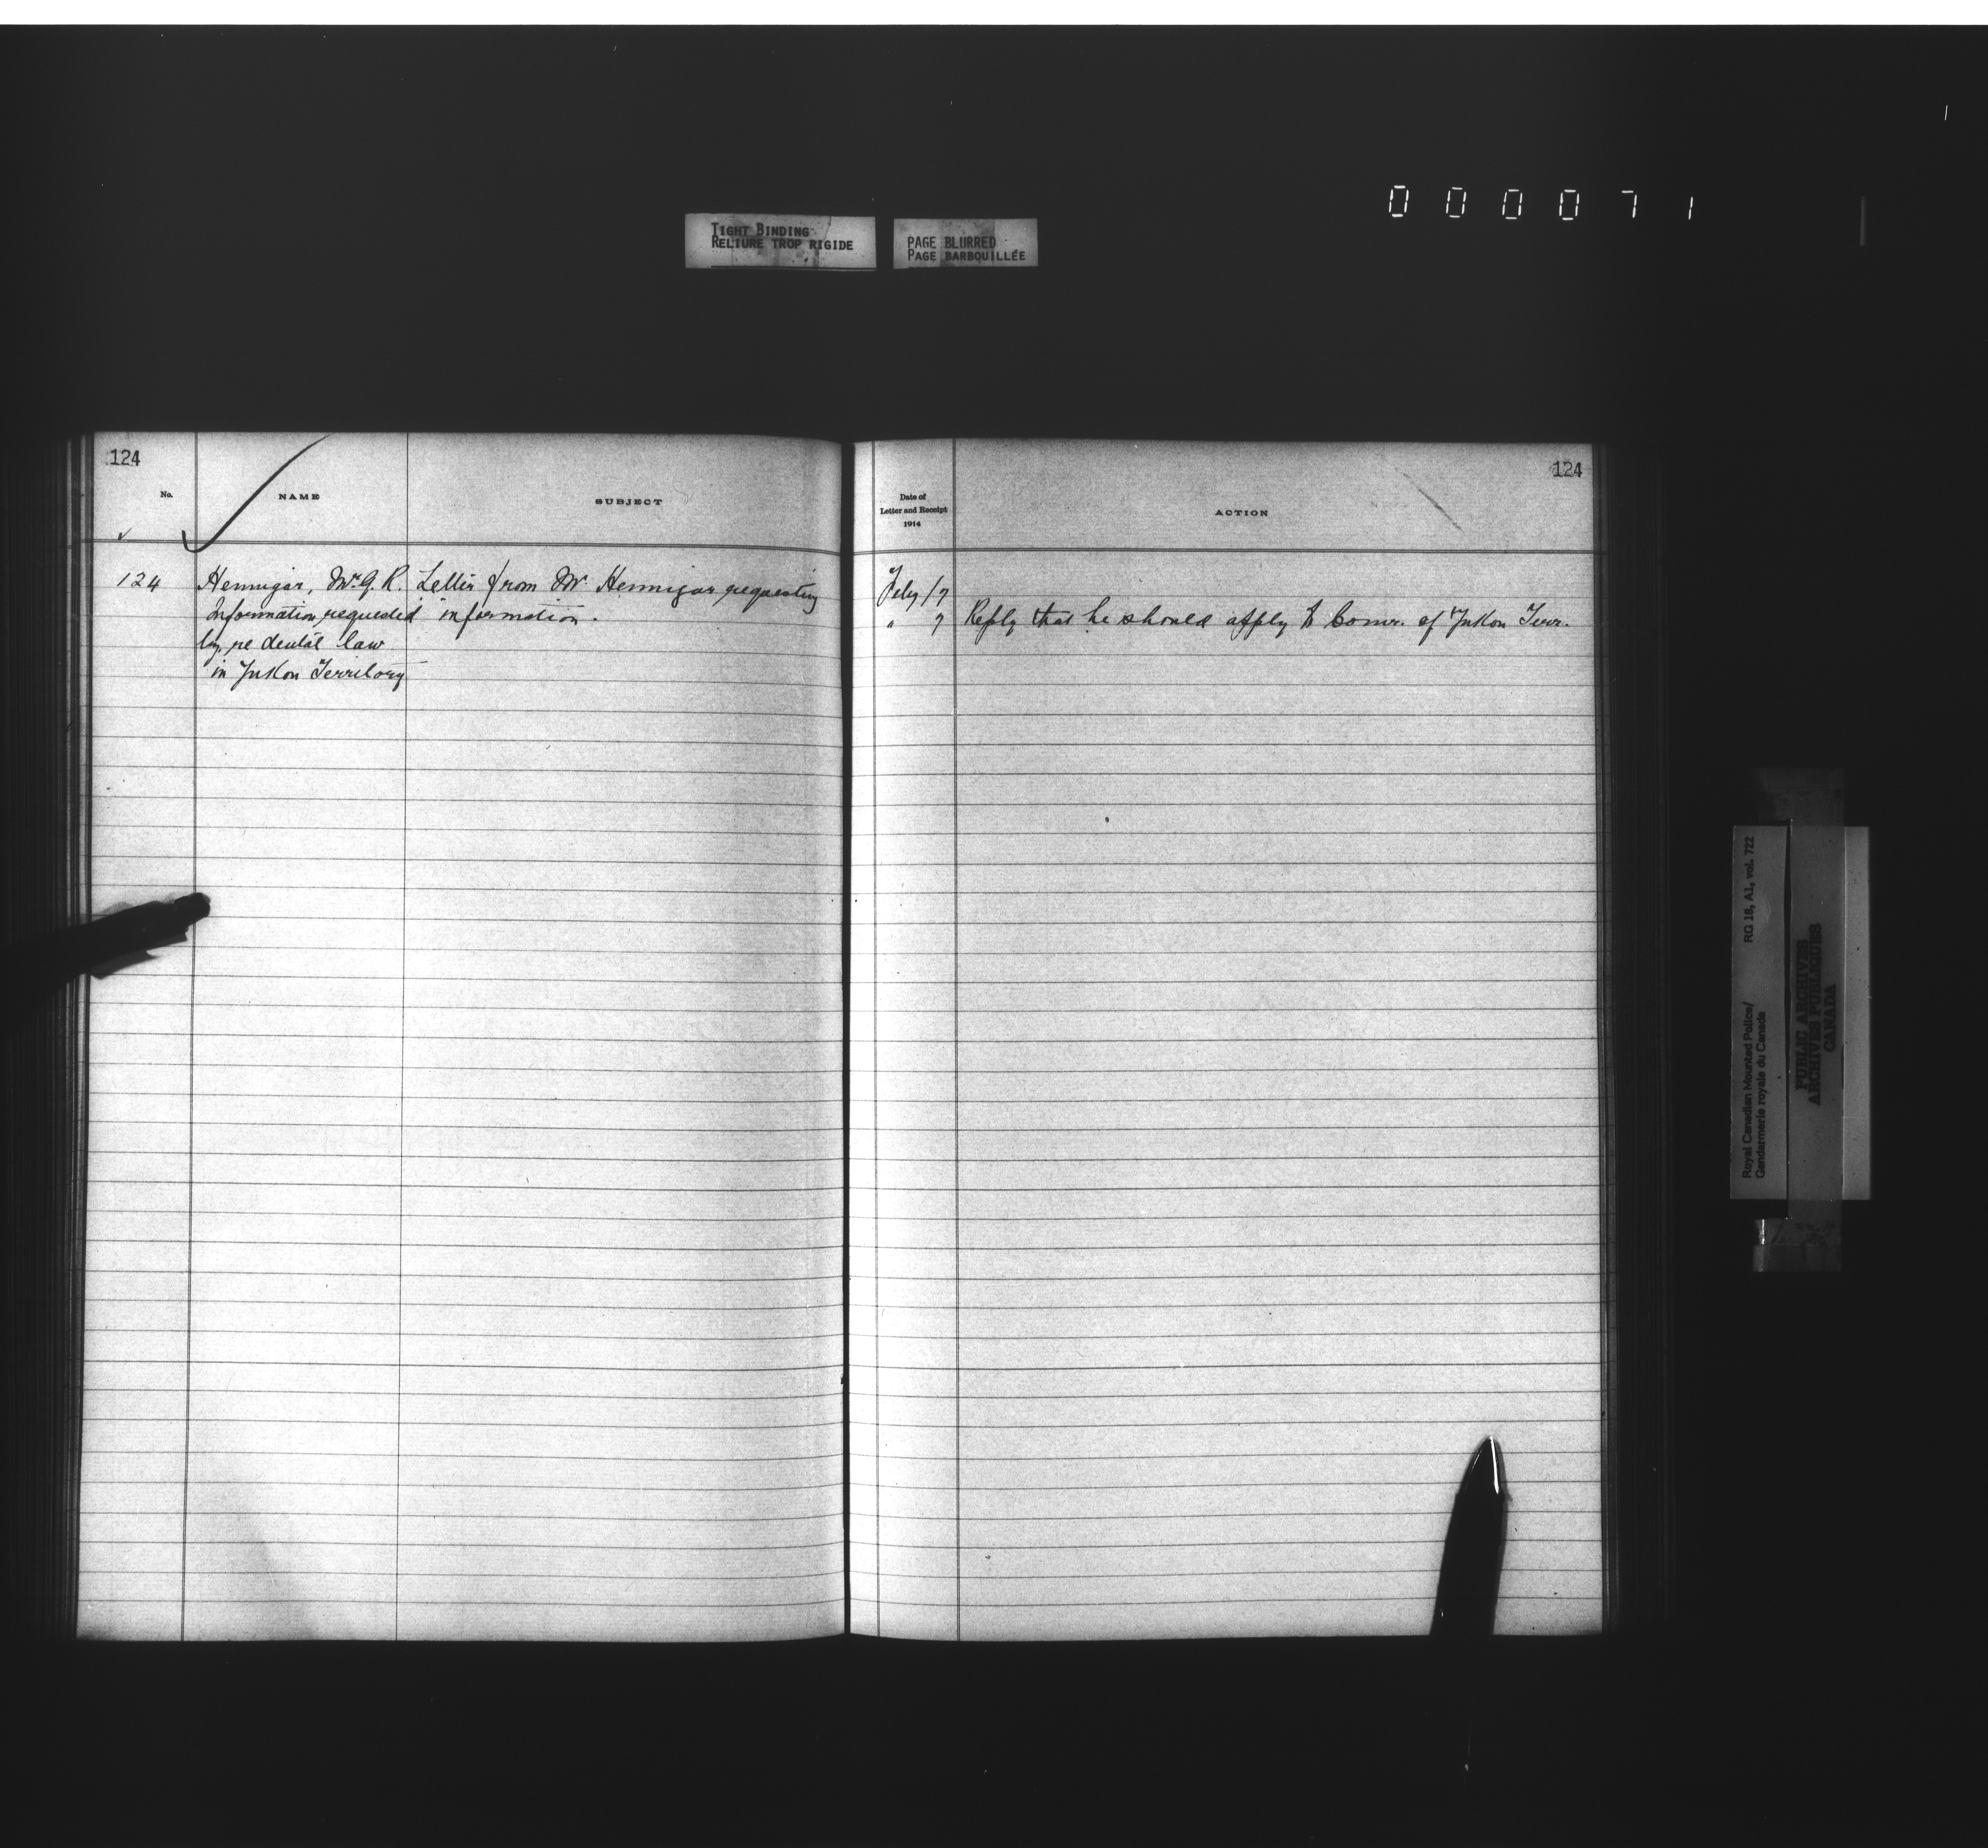 000071
TIGHT BINDING
RELIURE TROP RIGIDE
PAGE BLURRED
PAGE BARBOUILLÉE
124
No.
NAME
SUBJECT
124 Hennigar, Mr. G. R. Letter from Mr. Hennigar requesting
Information requested information.
by, re dental law
in Yukon Territory
124
Date of
Letter and Receipt
1914
ACTION
Feby 17
" 7 Reply that he should apply to Comr. of Yukon Terr.
Royal Canadian Mounted Police/ RG 18, A1, vol. 722
Gendarmerie royale du Canada
PUBLIC ARCHIVES
ARCHIVES PUBLIQUES
CANADA